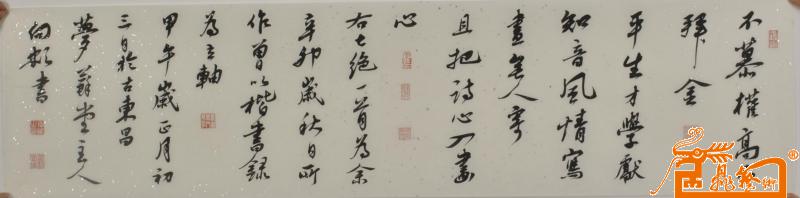 不慕權高不
拜金
平生才學獻
知音風情寫
畫無人會
且把詩心入畫
心
右七絕一首為余
辛卯歲秋日所
作曾以楷書錄
為立軸
甲午歲正月初
三日於古東昌
夢蘇堂主人
向彬書